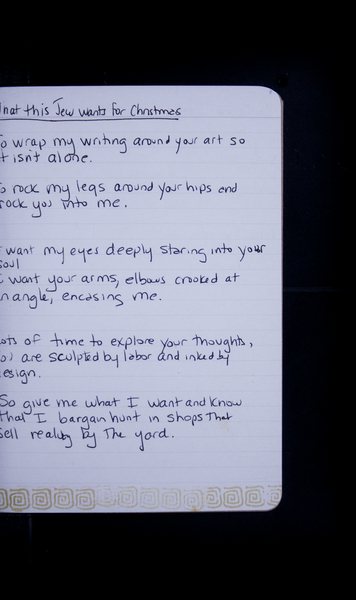 What this Jew wants for Christmas
To wrap my writing around your art so
it isn't alone.
To rock my legs around your hips and
rock you into me.
I want my eyes deeply staring into your
soul
I want your arms, elbows crooked at
an angle, encasing me.
Lots of time to explore your thoughts,
are sculpted by labor and inked by
design.
So give me what I want and know
that I bargan hunt in shops that
sell reality by the yard.